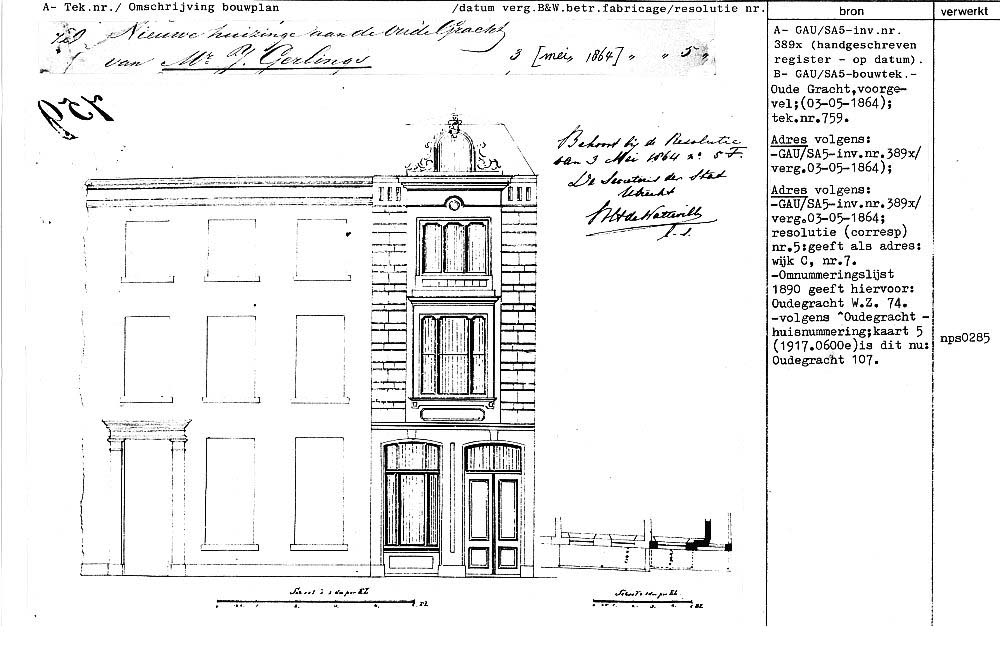 A- Tek.nr./ Omschrijving bouwplan /datum verg.B&W.betr.fabricage/resolutie nr.
bron
verwerkt
759 Nieuwe huizinge aan de oude Gracht
van Mr. J. Gerlings 3 [mei, 1864] „ „ 5 „
759
Behoort bij de Resolutie
van 3 Mei 1864 no. 5 F.
De Secretaris der Stad
Utrecht
l.s.
A- GAU/SA5-inv.nr.
389x (handgeschreven
register - op datum).
B- GAU/SA5-bouwtek.-
Oude Gracht,voorge-
vel;(03-05-1864);
tek.nr.759.
Adres volgens:
-GAU/SA5-inv.nr.389x/
verg.03-05-1864);
Adres volgens:
-GAU/SA5-inv.nr.389x/
verg.03-05-1864;
resolutie (corresp)
nr.5:geeft als adres:
wijk C, nr.7.
-Omnummeringslijst
1890 geeft hiervoor:
Oudegracht W.Z. 74.
-volgens ^Oudegracht -
huisnummering;kaart 5
(1917.0600e)is dit nu:
Oudegracht 107.
nps0285